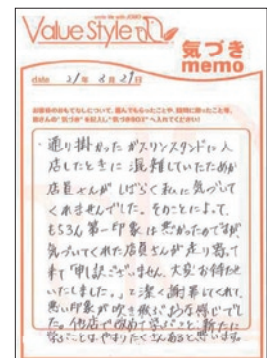 Value Style
気づき
memo
date 21年 8月21日
・通り掛かったガスリンスタンドに入
店したときに混雑していたためか
店員さんがしばらく私に気づいて
くれませんでした。そのことによって、
もちろん第一印象は悪かったのですが
気づいてくれた店員さんが走り寄って
来て「申し訳ございません、大変お待たせ
いたしました。」と深く謝罪してくれて、
悪い印象が吹き飛ぶような感じでし
た。他店で改めて学ぶこと、新たに
学ぶことはやはりたくさんあると思います。